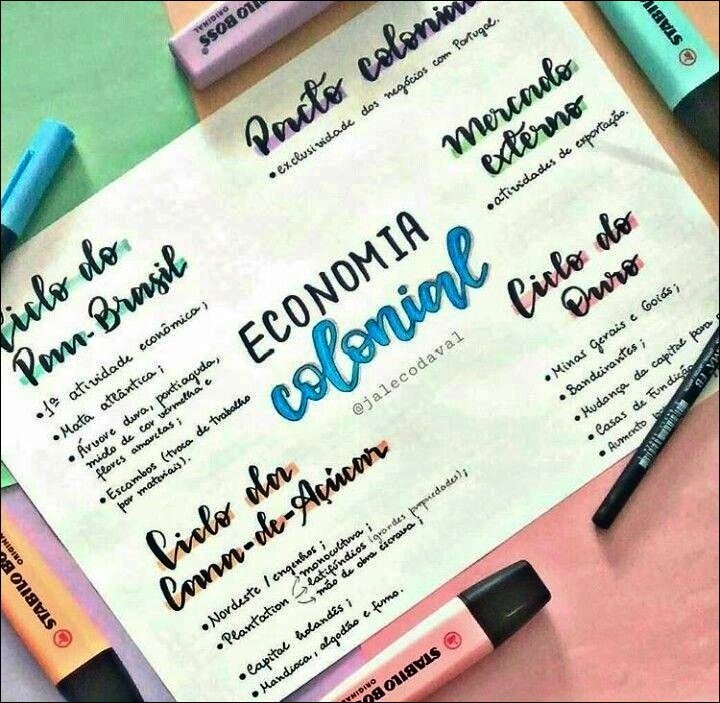 STABILO BOSS
ORIGINAL
STABILO
Pacto colonial
• exclusividade dos negócios com Portugal.
Mercado
externo
• atividades de exportação.
Ciclo do
Pau-Brasil
• 1ª atividade econômica;
• Mata atlântica;
• Árvore dura, pontiaguda,
miolo de cor vermelha e
flores amarelas;
• Escambos (troca de trabalho
por materiais).
ECONOMIA
colonial
@jalecodaval
Ciclo do
Ouro
• Minas Gerais e Goiás;
• Bandeirantes;
• Mudança da capital para
• Casas de Fundição
• Aumento
Ciclo da
Cana-de-Açúcar
• Nordeste / engenhos;
• Plantation → monocultura;
→ latifúndios (grandes propriedades);
→ mão de obra escrava;
• Capital holandês;
• Mandioca, algodão e fumo.
STABILO BOSS
ORIGINAL
STABILO BOSS
ORIGINAL